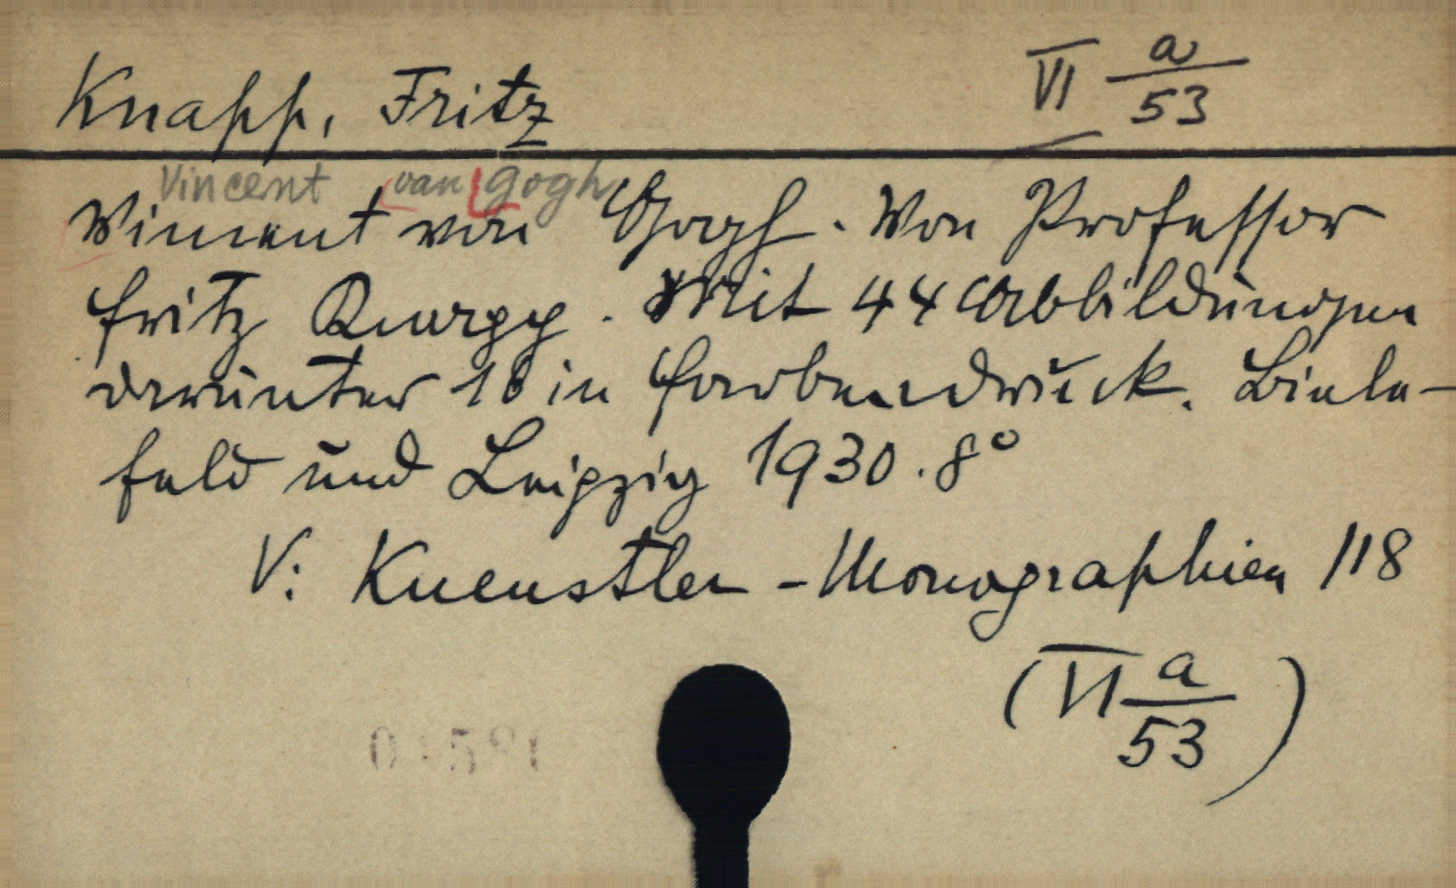 Knapp, Fritz VI a/53
Vincent van Gogh
Vincent van Gogh. Von Professor
Fritz Knapp. Mit 44 Abbildungen
darunter 16 in Farbendruck. Biele-
feld und Leipzig 1930. 8°
V: Kuenstler-Monographien 118
(VI a/53)